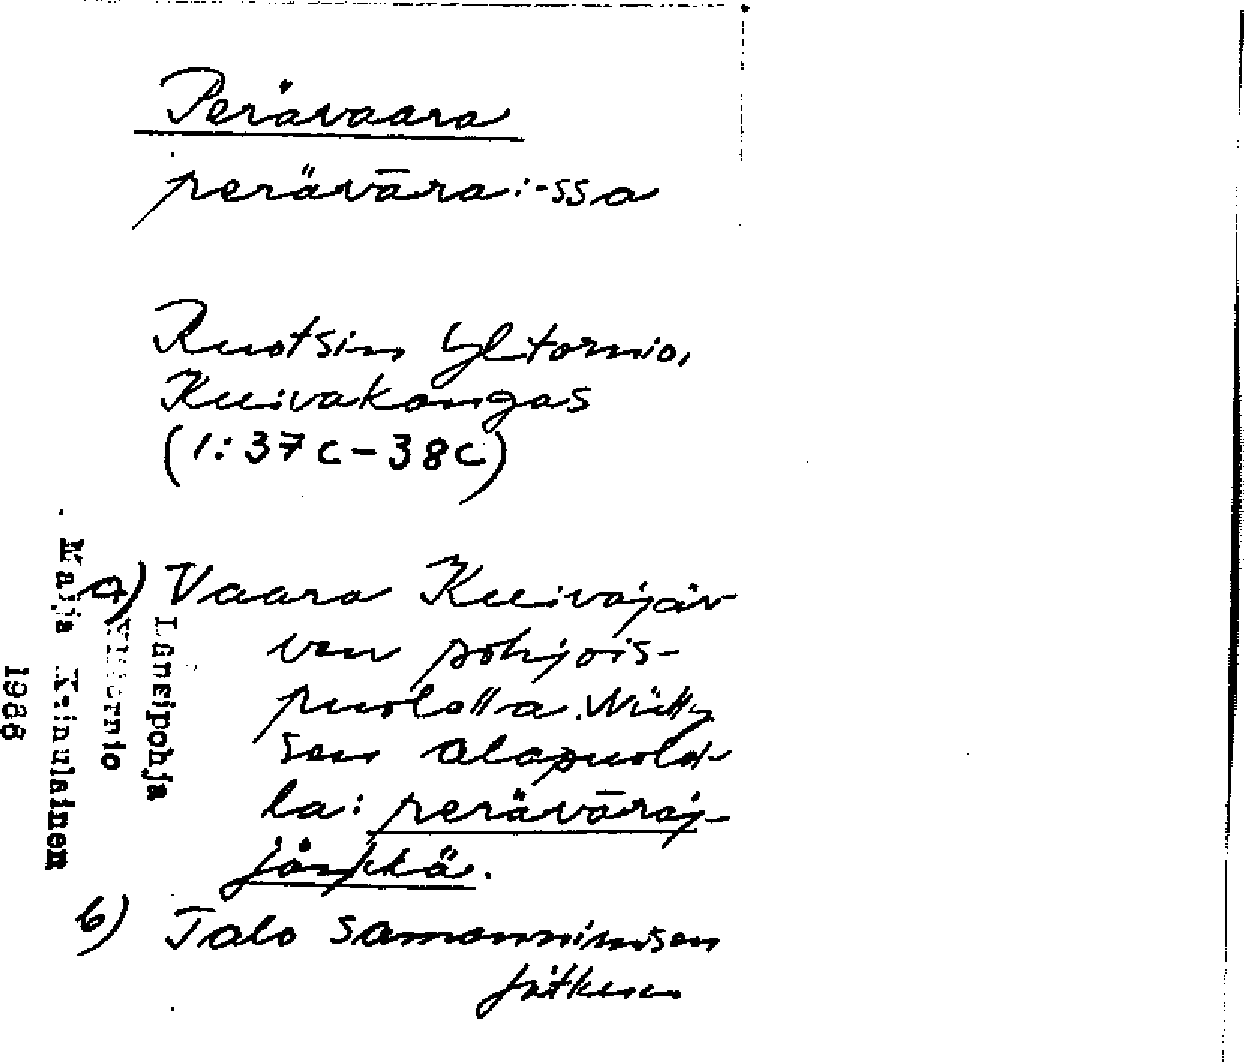 Perävaara
perävāra: -ssa
Ruotsin Ylitornio,
Kuivakangas
(1: 37 c – 38 c)
a) Vaara Kuivajär-
ven pohjois-
puolella.
sen alapuolel-
la: perävāraj-
jänkkä.
b) Talo samannimisen
Länsipohja
Ylitornio
Maija Keinulainen
1968